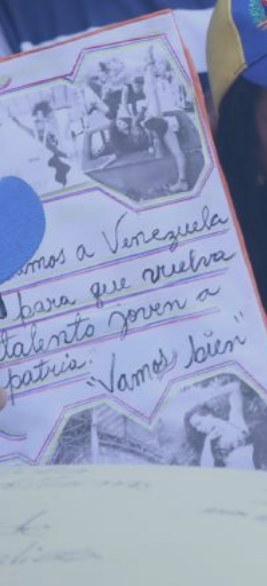 amos a Venezuela
para que vuelva
talento joven a
patria."
"Vamos bien"